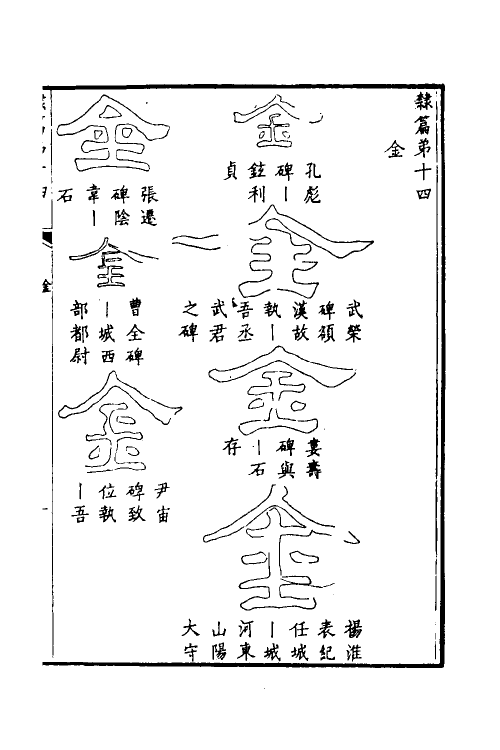 隸篇弟十四
金
金
孔彪
碑丨
鉉利
貞
金
武榮
碑額
漢故
執丨
吾丞
武君
之碑
金
婁壽
碑與
丨石
存
金
揚淮
表紀
任城
丨城
河東
山陽
大守
金
張遷
碑陰
韋丨
石
金
曹全碑
丨城西
部都尉
金
尹宙
碑致
位執
丨吾
金